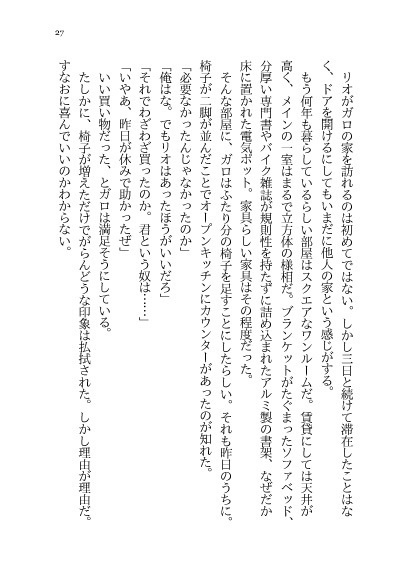 27
リオがガロの家を訪れるのは初めてではない。しかし三日と続けて滞在したことはな
く、ドアを開けるにしてもいまだに他人の家という感じがする。
もう何年も暮らしているらしい部屋はスクエアなワンルームだ。賃貸にしては天井が
高く、メインの一室はまるで立方体の様相だ。ブランケットがたぐまったソファベッド、
分厚い専門書やバイク雑誌が規則性を持たずに詰め込まれたアルミ製の書架、なぜだか
床に置かれた電気ポット。家具らしい家具はその程度だった。
そんな部屋に、ガロはふたり分の椅子を足すことにしたらしい。それも昨日のうちに。
椅子が二脚が並んだことでオープンキッチンにカウンターがあったのが知れた。
「必要なかったんじゃなかったのか」
「俺はな。でもリオはあったほうがいいだろ」
「それでわざわざ買ったのか。君という奴は……」
「いやあ、昨日が休みで助かったぜ」
いい買い物だった、とガロは満足そうにしている。
たしかに、椅子が増えただけでがらんどうな印象は払拭された。しかし理由が理由だ。
すなおに喜んでいいのかわからない。